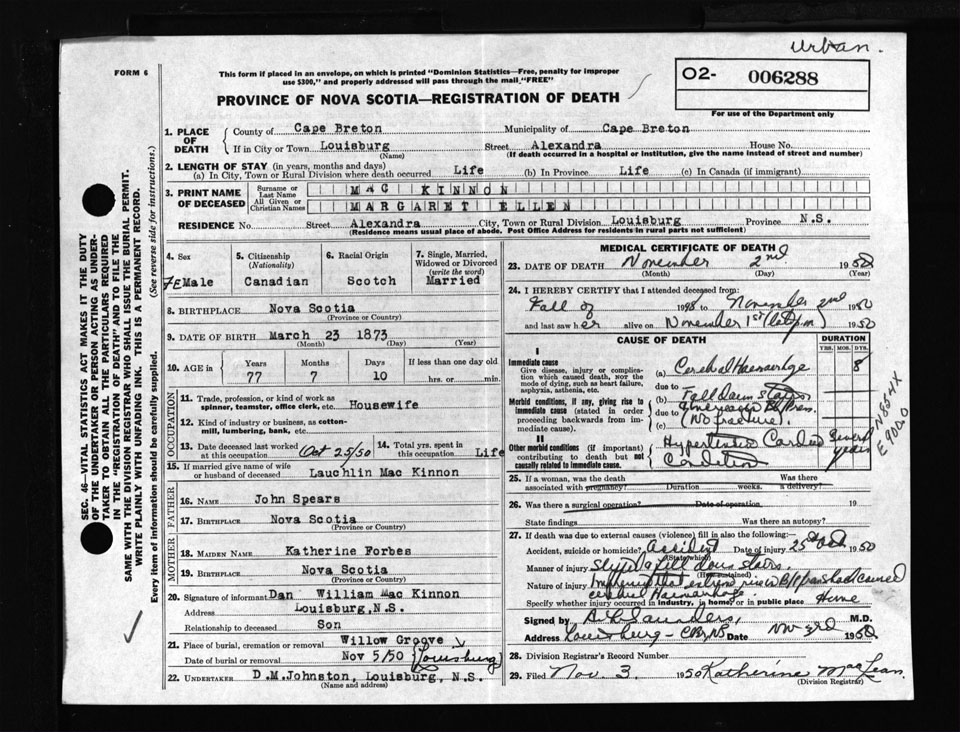 Urban.
FORM 6
This form if placed in an envelope, on which is printed "Dominion Statistics—Free, penalty for improper
use $300," and properly addressed will pass through the mail "FREE"
02- 006288
PROVINCE OF NOVA SCOTIA—REGISTRATION OF DEATH
For use of the Department only
1. PLACE OF DEATH County of Cape Breton Municipality of Cape Breton
If in City or Town Louisburg Street Alexandra House No.
(Name) (If death occurred in a hospital or institution, give the name instead of street and number)
2. LENGTH OF STAY (in years, months and days)
(a) In City, Town or Rural Division where death occurred Life (b) In Province Life (c) In Canada (if immigrant)
3. PRINT NAME OF DECEASED Surname or Last Name MAC KINNON
All Given or Christian Names MARGARET ELLEN
RESIDENCE No. Street Alexandra City, Town or Rural Division Louisburg Province N.S.
(Residence means usual place of abode. Post Office Address for residents in rural parts not sufficient)
4. Sex FEMale
5. Citizenship (Nationality) Canadian
6. Racial Origin Scotch
7. Single, Married, Widowed or Divorced (write the word) Married
8. BIRTHPLACE Nova Scotia
(Province or Country)
9. DATE OF BIRTH March 23 1873
(Month) (Day) (Year)
10. AGE in Years 77 Months 7 Days 10 If less than one day old
hrs. or min.
OCCUPATION
11. Trade, profession, or kind of work as
spinner, teamster, office clerk, etc. Housewife
12. Kind of industry or business, as cotton-
mill, lumbering, bank, etc.
13. Date deceased last worked at this occupation Oct 25/50
14. Total yrs. spent in this occupation Life
15. If married give name of wife
or husband of deceased Lauchlin Mac Kinnon
FATHER
16. NAME John Spears
17. BIRTHPLACE Nova Scotia
(Province or Country)
MOTHER
18. MAIDEN NAME Katherine Forbes
19. BIRTHPLACE Nova Scotia
(Province or Country)
20. Signature of informant Dan William Mac Kinnon
Address Louisburg, N.S.
Relationship to deceased Son
21. Place of burial, cremation or removal Willow Groove
Date of burial or removal Nov 5/50 (Louisburg)
22. UNDERTAKER D.M.Johnston, Louisburg, N.S.
(Name and address)
MEDICAL CERTIFICATE OF DEATH
23. DATE OF DEATH November 2nd 1950
(Month) (Day) (Year)
24. I HEREBY CERTIFY that I attended deceased from:
Fall of 1948 to November 2nd 1950
and last saw her alive on November 1st 1950
CAUSE OF DEATH DURATION
YRS. MOS. DYS.
I
Immediate cause
Give disease, injury or complication which caused death, not the mode of dying, such as heart failure, asphyxia, asthenia, etc.
(a) Cerebral Haemorrhge 8
due to
Morbid conditions, if any, giving rise to immediate cause (stated in order proceeding backwards from immediate cause).
(b) Fall down stairs
due to
(c) (No fracture).
II
Other morbid conditions (if important) contributing to death but not causally related to immediate cause.
Hypertensive Cardiac Condition Several years
N854X
E900.0
25. If a woman, was the death Was there
associated with pregnancy? Duration weeks. a delivery?
26. Was there a surgical operation? Date of operation. 19
State findings Was there an autopsy?
27. If death was due to external causes (violence) fill in also the following:—
Accident, suicide or homicide? Accident Date of injury 25th Oct 1950
(State which)
Manner of injury slipped & fell down stairs.
(How sustained)
Nature of injury
cerebral Haemorrhage.
Specify whether injury occurred in industry, in home, or in public place Home
Signed by Saunders, M.D.
Address Louisburg - CB, NS Date Nov 3rd 1950
28. Division Registrar's Record Number
29. Filed Nov. 3 1950 Katherine MacLean.
(Division Registrar)
SEC. 46—VITAL STATISTICS ACT MAKES IT THE DUTY
OF THE UNDERTAKER OR PERSON ACTING AS UNDER-
TAKER TO OBTAIN ALL THE PARTICULARS REQUIRED
IN THE "REGISTRATION OF DEATH" AND TO FILE THE
SAME WITH THE DIVISION REGISTRAR WHO SHALL ISSUE THE BURIAL PERMIT.
WRITE PLAINLY WITH UNFADING INK. THIS IS A PERMANENT RECORD.
Every item of information should be carefully supplied. (See reverse side for instructions.)